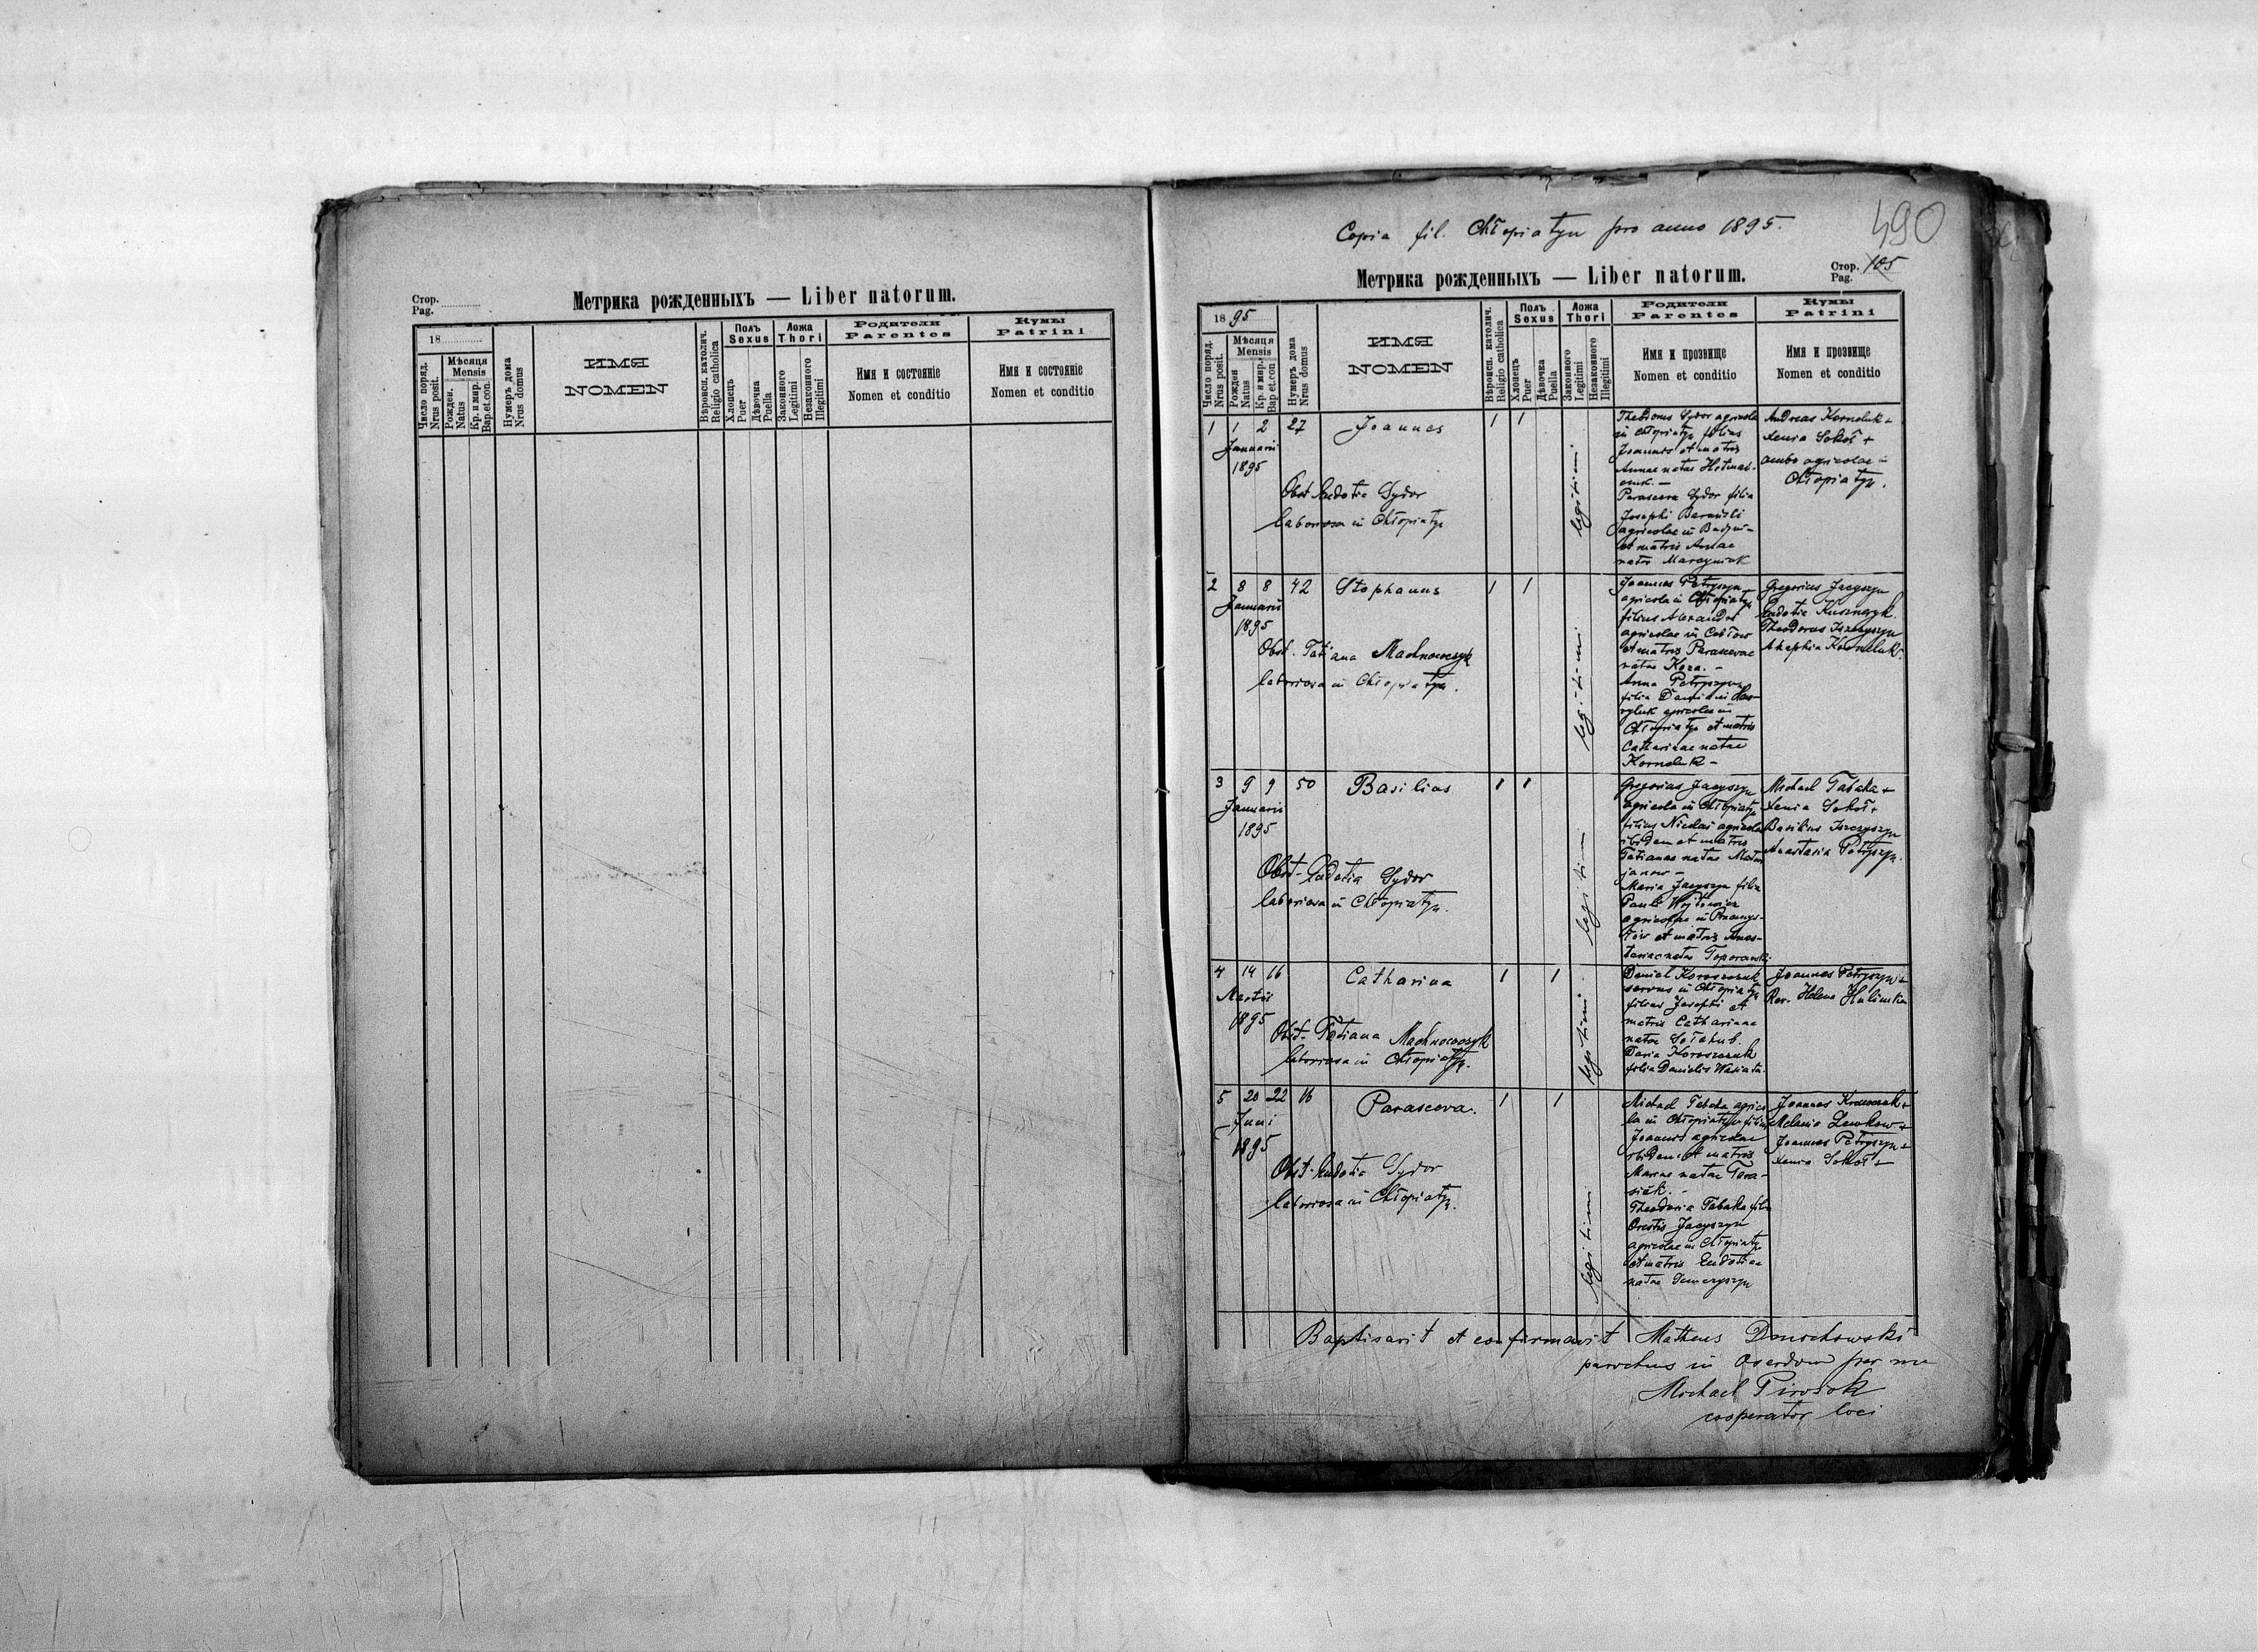 Стор.
Pag.
Метрика рожденныхъ — Liber natorum.
18
Число поряд.
Nrus posit.
Мѣсяця
Mensis
Рожден.
Natus
Кр. и мир.
Bap.et.con.
Нумеръ дома
Nrus domus
ИМЯ
NOMEN
Вѣроисп. католич.
Religio catholica
Полъ
Sexus
Хлопецъ
Puer
Дѣвочка
Puella
Ложа
Thori
Законного
Legitimi
Незаконного
Illegitimi
Родители
Parentes
Имя и состоянie
Nomen et conditio
Кумы
Patrini
Имя и состоянie
Nomen et conditio
Copia fil. Chłopiatyn pro anno 1895.
490
Метрика рожденныхъ — Liber natorum.
Стор.
Pag. 105
1895
Число поряд.
Nrus posit.
Мѣсяця
Mensis
Рожден
Natus
Кр. и мир.
Bap.et.con
Нумеръ дома
Nrus domus
ИМЯ
NOMEN
Вѣроисп. католич.
Religio catholica
Полъ
Sexus
Хлопецъ
Puer
Дѣвочка
Puella
Ложа
Thori
Законного
Legitimi
Незаконного
Illegitimi
Родители
Parentes
Имя и прозвище
Nomen et conditio
Кумы
Patrini
Имя и прозвище
Nomen et conditio
1 1 2 27 Joannes 1 1
Januarii
1895
Obst. Eudotia Sydor
laboriosa in Chłopiatyn
legitimi
Theodorus Sydor agricola
in Chłopiatyn filius
Joannis et matris
Annae natae
Parascева Sydor filia
Josephi Barański
agricolae in
et matris Annae
natae Marcyniuk
Andreas Korneluk +
Xenia Sokoł +
ambo agricolae in
Chłopiatyn.
2 8 8 42 Stephanus 1 1
Januarii
1895
Obst. Tatiana Machnowczyk
laboriosa in Chłopiatyn.
legitimi
Joannes Petryszyn
agricola in Chłopiatyn
filius Alexandri
agricolae in
et matris Parascevae
natae Koza. -
Anna Petryszyn
filia Damiani
agricolae in
Chłopiatyn et matris
Catharinae natae
Korneluk -
Gregorius Jacyszyn
Eudotia
Theodorus Iszczyszyn
Korneluk.
3 9 9 50 Basilius 1 1
Januarii
1895
Obst. Eudotia Sydor
laboriosa in Chłopiatyn.
legitimi
Gregorius Jacyszyn
agricola in Chłopiatyn
filius Nicolai agricolae
ibidem et matris
Tatianae natae
Maria Jacyszyn filia
Pauli Wojtowicz
agricolae in Przemys-
łów et matris Anas-
tasiae natae Toporowski
Michael Tabaka +
Xenia Sokoł +
Basilius Iszczyszyn
Anastasia Petryszyn.
4 14 16 Catharina 1 1
Martii
1895
Obst. Tatiana Machnowczyk
laboriosa in Chłopiatyn.
legitimi
Daniel Koroszczuk
servus in Chłopiatyn
filius Josephi et
matris Catharinae
natae Sołahub.
Daria Koroszczuk
filia Danielis
Joannes Petryszyn +
Rev. Helena Hulimka
5 20 22 16 Parasceva. 1 1
Juni
1895
Obst. Eudotia Sydor
laboriosa in Chłopiatyn.
legitimi
Michael Tabaka agrico
la in Chłopiatyn filius
Joannis agricolae
ibidem et matris
Mariae natae Tara-
siuk. -
Theodosia Tabaka filia
Orestis Jacyszyn
agricolae in Chłopiatyn
et matris Eudotiae
natae
Joannes Krawczuk +
Melania Lewkow +
Joannes Petryszyn +
Xenia Sokoł +
Baptisavit et confirmavit Matheus
parochus in Oserdow per me
Michael
cooperator loci